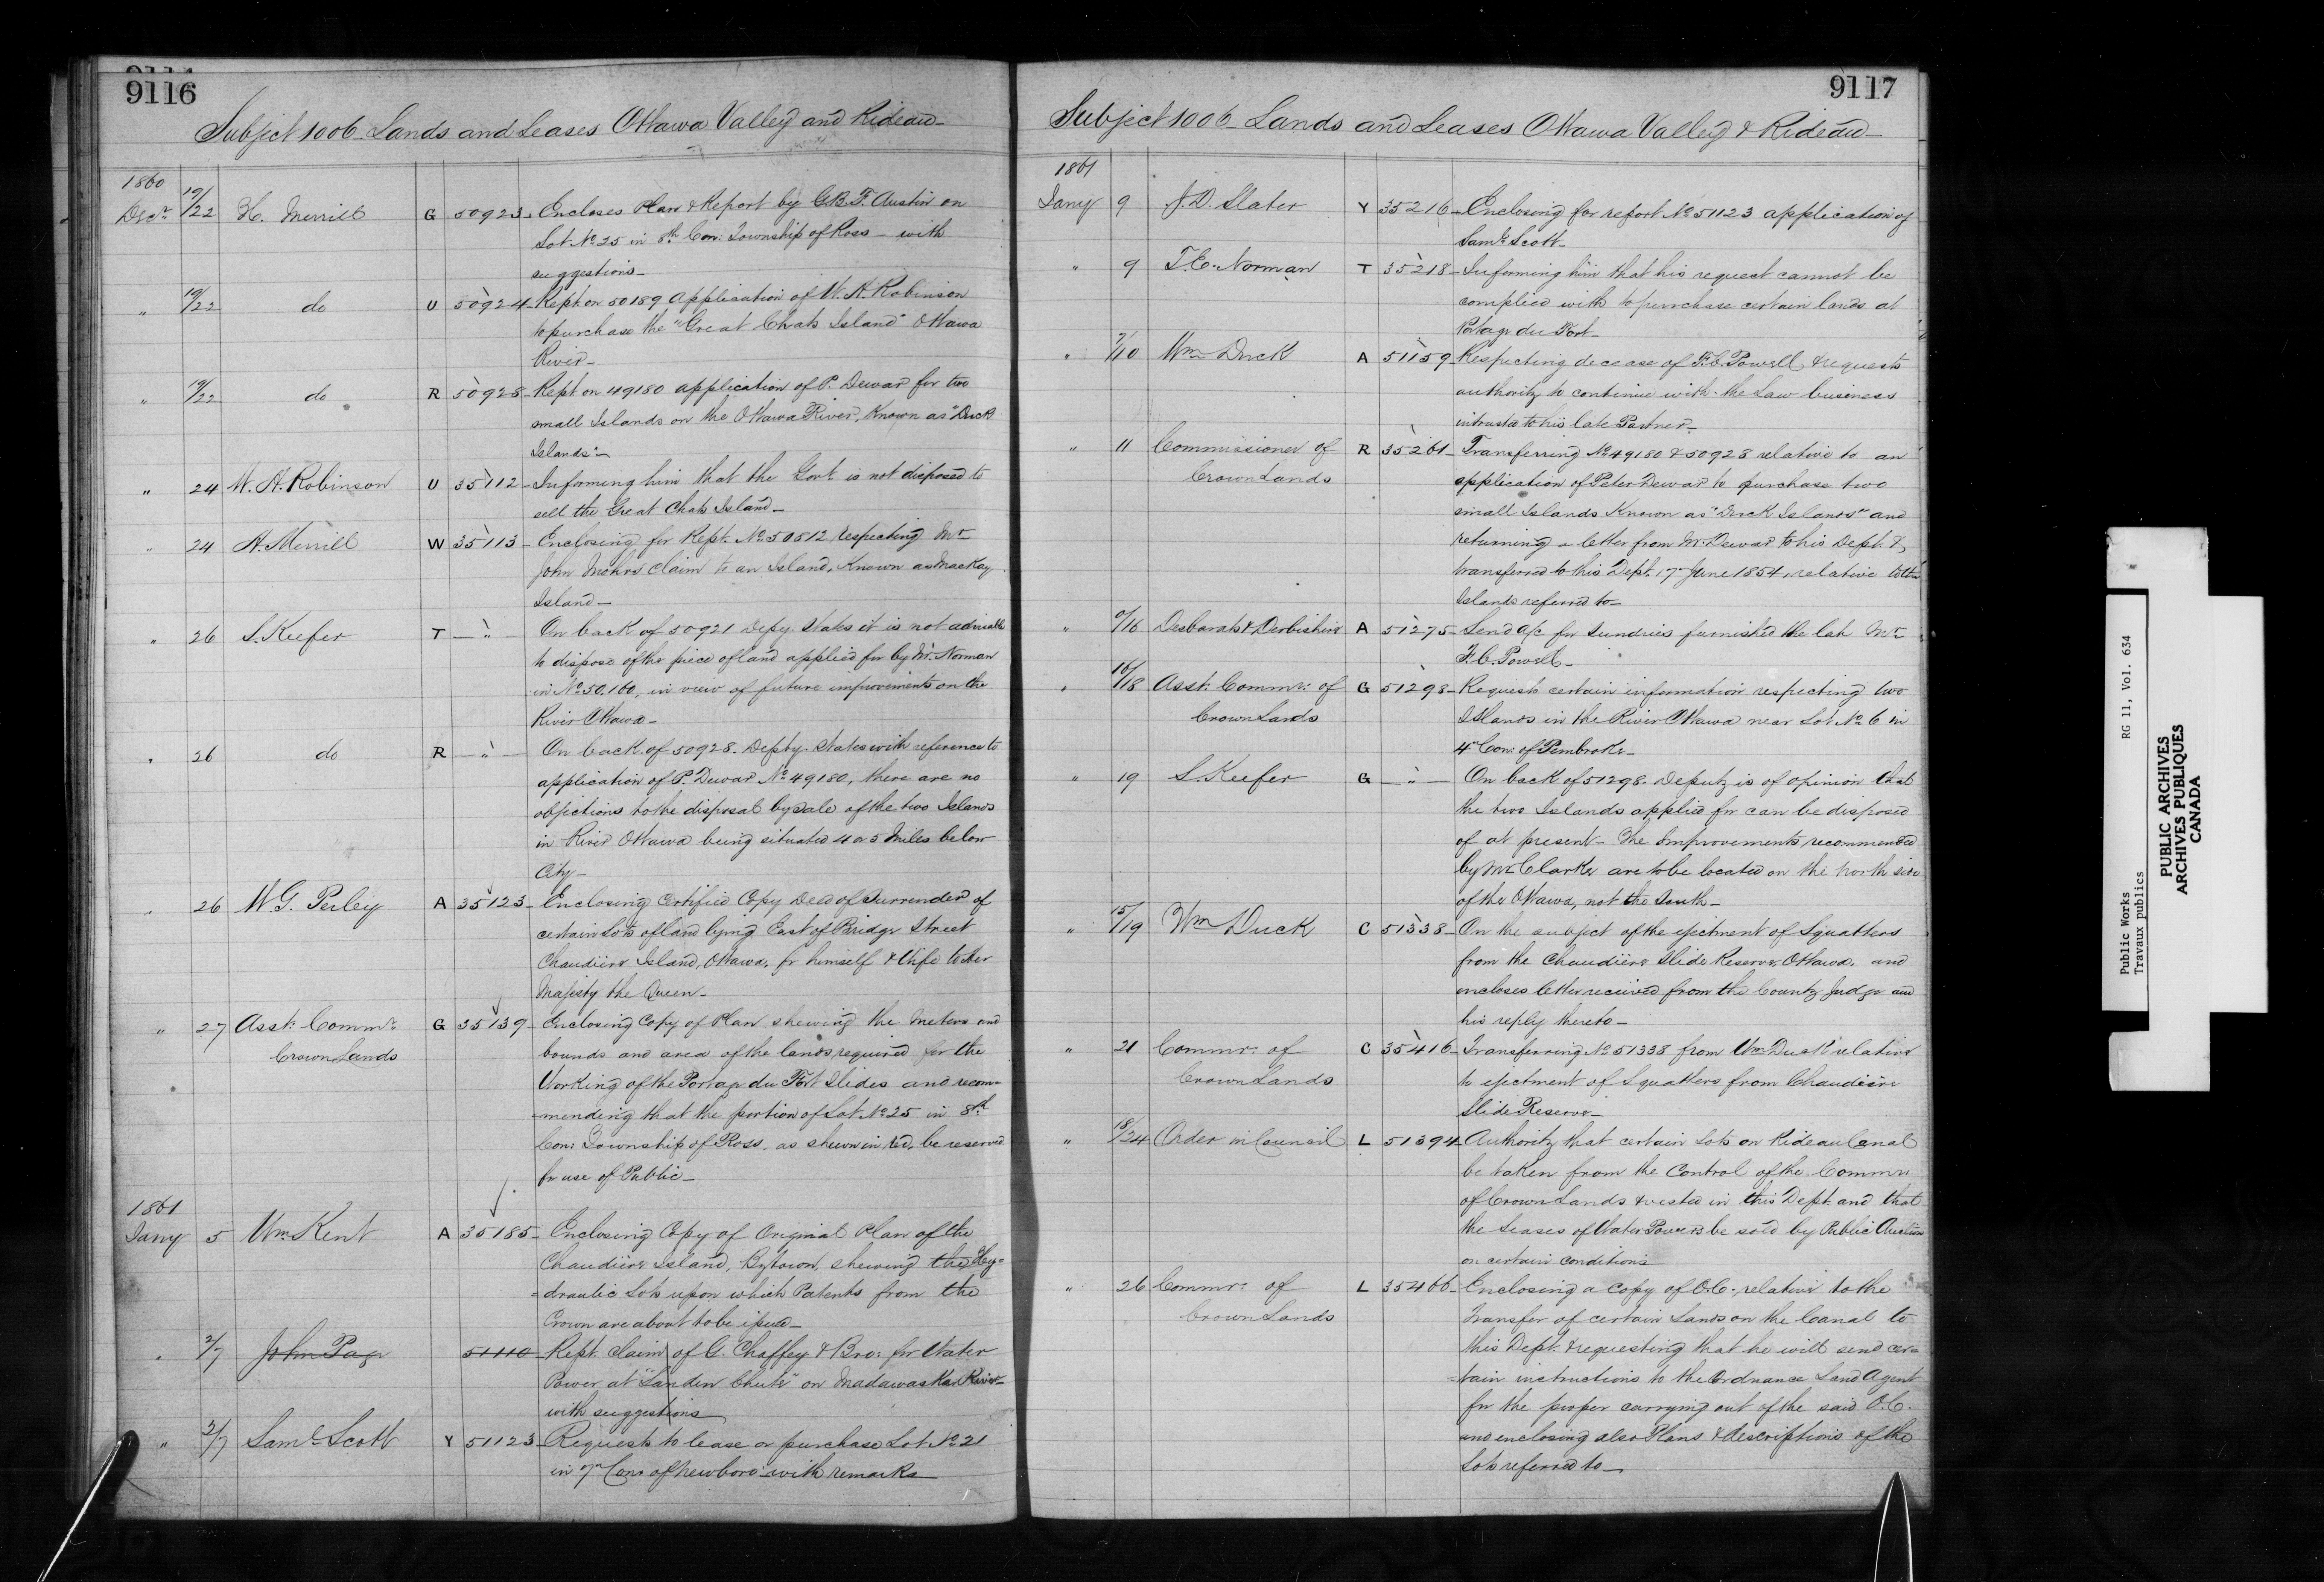 9114
9116
Subject 1006 Lands and Leases Ottawa Valley and Rideau
1860
Decr. 19/22 H. Merrill G 50923 Encloses Plan & Report by G.B.F. Austin on
Lot No. 25 in 8th Con: Township of Ross – with
suggestions –
" 19/22 do U 50924 Rept. on 50189 Application of W. A. Robinson
to purchase the "Great Chats Island" Ottawa
River –
" 19/22 do R 50928 Rept. on 49180 application of P. Dewar for two
small Islands on the Ottawa River, Known as "Duck
Islands" –
" 24 W. A. Robinson U 35112 Informing him that the Govt. is not disposed to
sell the Great Chats Island –
" 24 H. Merrill W 35113 Enclosing for Rept. No. 50812 respecting Mr.
John Mohrs claim to an Island, Known as MacKay
Island –
" 26 S. Keefer T — " — On back of 50921 Depy. States it is not advisable
to dispose of the piece of land applied for by Mr. Norman
in No. 50.160, in view of future improvements on the
River Ottawa –
" 26 do R — " — On back of 50928. Depty. States with reference to
application of P. Dewar No. 49180, there are no
objections to the disposal by Sale of the two Islands
in River Ottawa being situated 4 or 5 Miles below
City –
" 26 W. G. Perley A 35123 Enclosing Certified Copy Deed of Surrender of
certain Lots of land lying East of Bridge Street
Chaudiere Island, Ottawa, for himself & Wife to Her
Majesty the Queen –
" 27 Asst. Commr. G 35139 Enclosing Copy of Plan shewing the meters and
Crown Lands bounds and area of the lands required for the
Working of the Portage du Fort Slides and recom-
=mending that the portion of Lot No. 25 in 8th
Con: Township of Ross, as shewn in red, be reserved
for use of Public –
1861
Jany 5 Wm. Kent A 35185 Enclosing Copy of Original Plan of the
Chaudiere Island, Bytown, shewing the Hy=
=draulic Lots upon which Patents from the
Crown are about to be issued –
" 2/7 John Page 51110 Rept. claim of G. Chaffey & Bro: for Water
Power at "Landen Chute" on Madawaska River –
with suggestions
" 3/7 Saml. Scott Y 51123 Requests to lease or purchase Lot No. 21
in 7th Con: of Newboro' with remarks
9117
Subject 1006 Lands and Leases Ottawa Valley & Rideau
1861
Jany 9 J. D. Slater Y 35216 Enclosing for report No. 51123 application of
Saml. Scott –
" 9 T. C. Norman T 35218 Informing him that his request cannot be
complied with to purchase certain lands at
Portage du Fort –
" 7/10 Wm. Duck A 51159 Respecting decease of F. C. Powell & requests
authority to continue with the Law business
intrusted to his late Partner –
" 11 Commissioner of R 35261 Transferring No. 49180 & 50928 relative to an
Crown Lands application of Peter Dewar to purchase two
small Islands Known as "Duck Islands" and
returning a letter from Mr. Dewar to his Dept. &
transferred to this Dept. 17 June 1854, relative to the
Islands referred to –
" 9/16 Desbarats & Derbishire A 51275 Send a/c for Sundries furnished the late Mr.
F. C. Powell –
" 16/18 Asst. Commr: of G 51298 Request certain information respecting two
Crown Lands Islands in the River Ottawa near Lot No. 6 in
4th Con: of Pembroke –
" 19 S. Keefer G — " — On back of 51298. Deputy is of opinion that
the two Islands applied for can be disposed
of at present – The Improvements recommended
by Mr. Clarke are to be located on the North side
of the Ottawa, not the South –
" 15/19 Wm. Duck C 51338 On the subject of the ejectment of Squatters
from the Chaudiere Slide Reserve, Ottawa, and
encloses letter received from the County Judge and
his reply thereto –
" 21 Commr: of C 35416 Transferring No. 51338 from Wm. Duck relative
Crown Lands to ejectment of Squatters from Chaudiere
Slide Reserve –
" 18/24 Order in Council L 51394 Authority that certain Lots on Rideau Canal
be taken from the Control of the Commr:
of Crown Lands & vested in this Dept. and that
the Leases of Water Powers be sold by Public Auction
on certain conditions
" 26 Commr: of L 35466 Enclosing a copy of O.C. relative to the
Crown Lands Transfer of certain Lands on the Canal to
this Dept. & requesting that he will send cer=
=tain instructions to the Ordnance Land Agent
for the proper carrying out of the said O.C.
and enclosing also Plans & descriptions of the
Lots referred to –
Public Works RG 11, Vol. 634
Travaux publics
PUBLIC ARCHIVES
ARCHIVES PUBLIQUES
CANADA